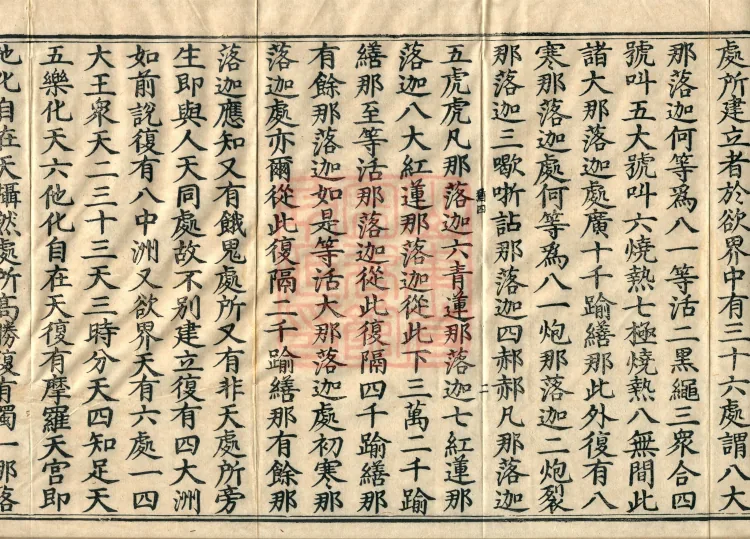 處所建立者於欲界中有三十六處謂八大
那落迦何等爲八一等活二黑繩三衆合四
號叫五大號叫六燒熱七極燒熱八無間此
諸大那落迦處廣十千踰繕那此外復有八
寒那落迦處何等爲八一炮那落迦二炮裂
那落迦三歇哳詀那落迦四郝郝凡那落迦
二
五虎虎凡那落迦六青蓮那落迦七紅蓮那
落迦八大紅蓮那落迦從此下三萬二千踰
繕那至等活那落迦從此復隔四千踰繕那
有餘那落迦如是等活大那落迦處初寒那
落迦處亦爾從此復隔二千踰繕那有餘那
落迦應知又有餓鬼處所又有非天處所旁
生即與人天同處故不別建立復有四大洲
如前說復有八中洲又欲界天有六處一四
大王衆天二三十三天三時分天四知足天
五樂化天六他化自在天復有摩羅天宮即
他化自在天攝然處所高勝復有獨一那落